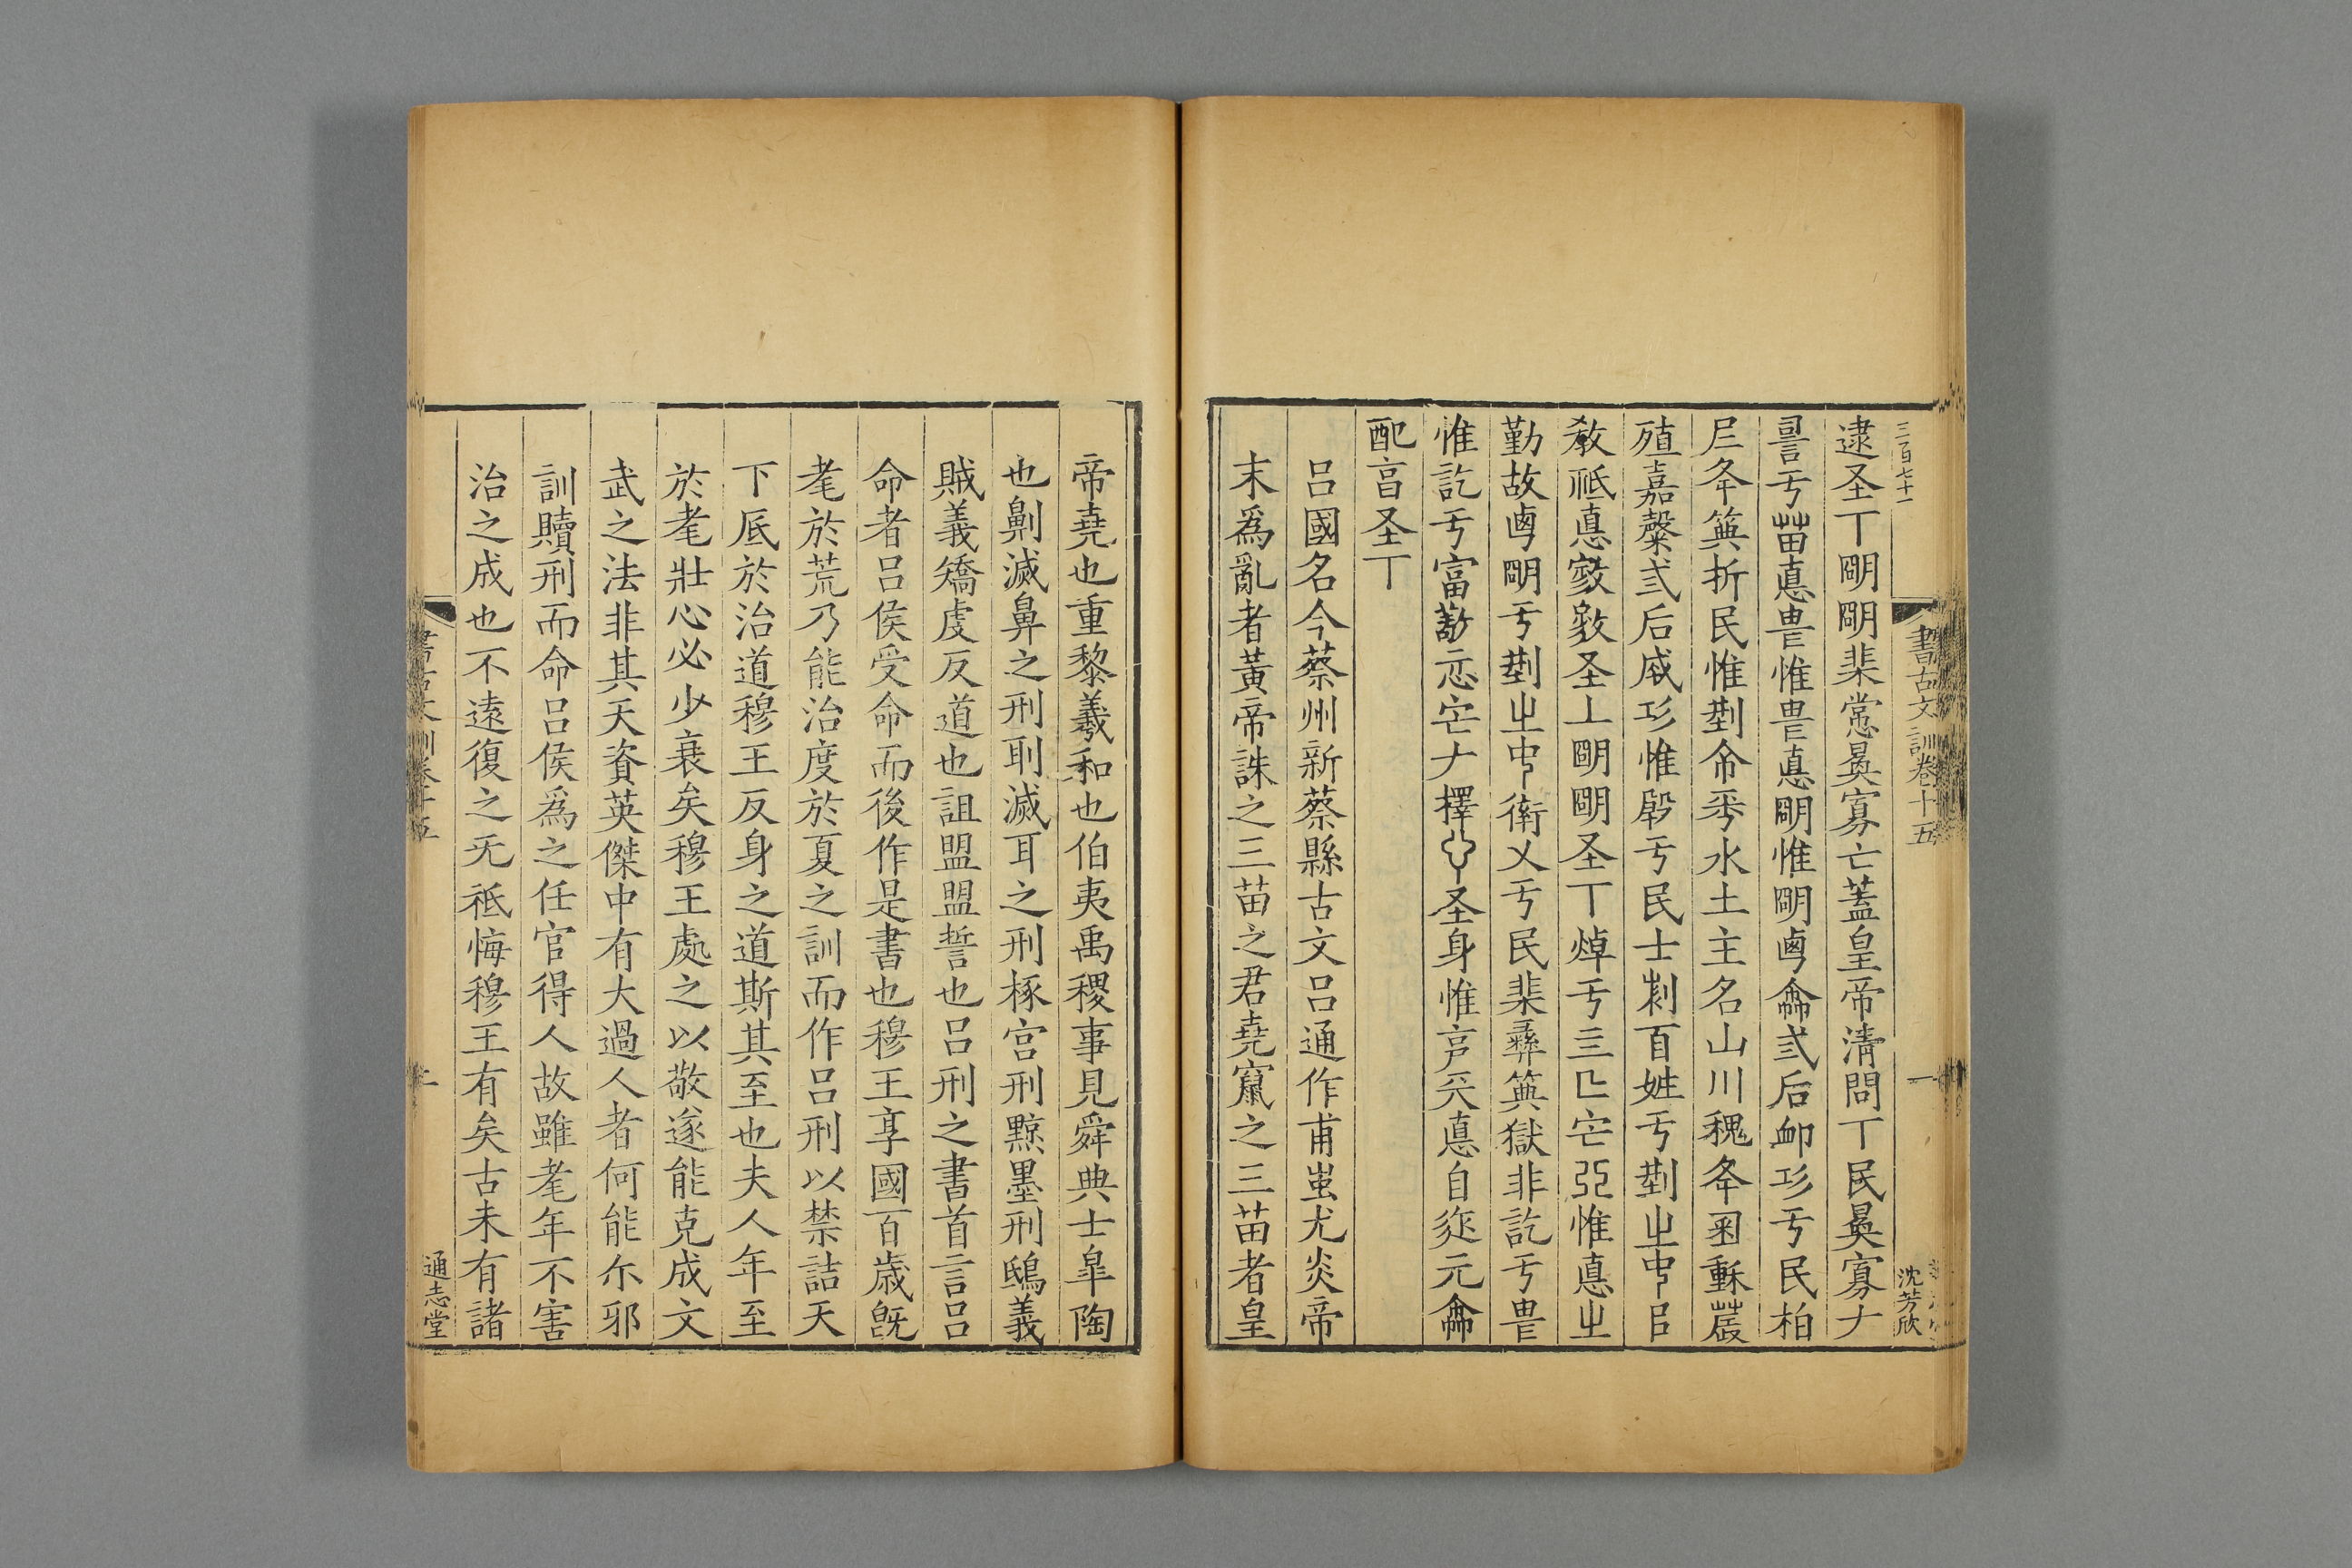 三百七十一
書古文訓卷十五
一
沈芳欣
逮圣丅朙朙棐寡亡蓋皇帝清問丅民寡𠂇
亐悳惟悳朙惟朙𠧟侖弎后卹㓛亐民柏
𡰥夅箕折民惟𠛬命釆水土主名山川稷夅
殖嘉弎后㓛惟亐民士𠛐百姓亐𠛬㞢中㠯
敎祗悳圣丄朙朙圣丅焯亐亖匚宓亞惟悳㞢
勤故𠧟朙亐𠛬㞢中衛乂亐民棐彝箕獄非訖亐
惟訖亐富宓𠂇擇圣身惟悳自元侖
配亯圣丅
呂國名今蔡州新蔡縣古文呂通作甫蚩尤炎帝
末爲亂者黃帝誅之三苗之君堯竄之三苗者皇
帝堯也重黎羲和也伯夷禹稷事見舜典士皐陶
也劓滅鼻之刑刵滅耳之刑椓宮刑黥墨刑鴟義
賊義矯虔反道也詛盟盟誓也呂刑之書首言呂
命者呂侯受命而後作是書也穆王享國百歲旣
耄於荒乃能治度於夏之訓而作呂刑以禁詰天
下底於治道穆王反身之道斯其至也夫人年至
於耄壯心必少衰矣穆王處之以敬遂能克成文
武之法非其天資英傑中有大過人者何能尒邪
訓贖刑而命呂侯爲之任官得人故雖耄年不害
治之成也不遠復之无祇悔穆王有矣古未有諸
書古文訓卷十五
通志堂